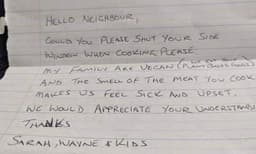 HELLO NEIGHBOUR,
COULD YOU PLEASE SHUT YOUR SIDE
WINDOW WHEN COOKING PLEASE.
MY FAMILY ARE VEGAN (
AND THE SMELL OF THE MEAT YOU COOK
MAKES US FEEL SICK AND UPSET.
WE WOULD APPRECIATE YOUR UNDERSTAND
THANKS
SARAH, WAYNE & KIDS